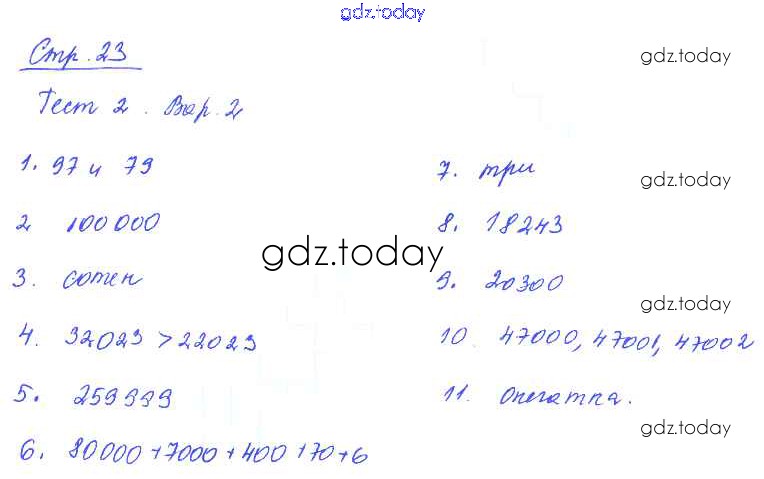 gdz.today
Стр. 23
gdz.today
Тест 2. Вар. 2
1. 97 и 79
7. три
gdz.today
2 100 000
8. 18243
gdz.today
3. сотен
9. 20300
gdz.today
4. 32023 > 22023
10. 47000, 47001, 47002
5. 259999
11.
gdz.today
6. 80000 + 7000 + 400 + 70 + 6